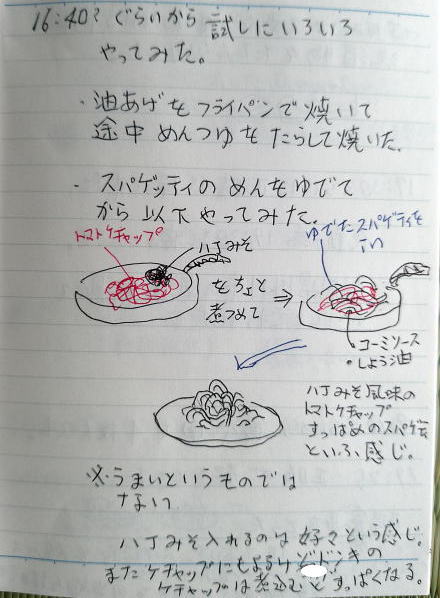 16:40? ぐらいから試しにいろいろ
やってみた。
・油あげをフライパンで焼いて
途中めんつゆをたらして焼いた。
・スパゲッティのめんをゆでて
から以下やってみた。
トマトケチャップ
ハ丁みそ
をちょと
煮つめて
⇒
ゆでたスパゲティを
・コーミソース
・しょう油
ハ丁みそ風味の
トマトケチャップ
すっぱめのスパゲティ
といふ感じ。
※うまいというものでは
ない
ハ丁みそ入れるのは好々という感じ。
またケチャップにもよるけど
ケチャップは煮込むとすっぱくなる。